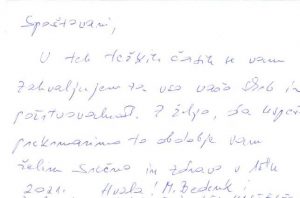 Spoštovani,
V teh težkih časih se vam
zahvaljujem za vso vašo skrb in
požrtvovalnost. Z željo, da uspešno
prekrmarimo to obdobje vam
želim srečno in zdravo v letu
2021. Hvala! M. Bedenk